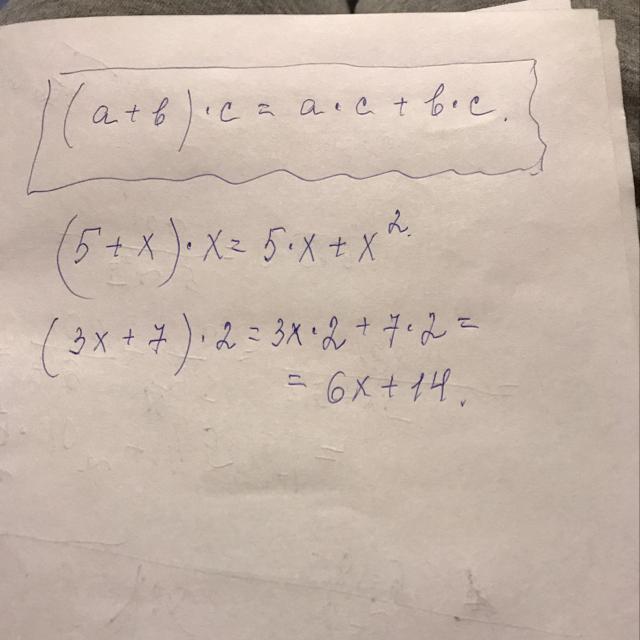 (a+b)·c = a·c + b·c.
(5+x)·x = 5·x + x².
(3x+7)·2 = 3x·2 + 7·2 =
= 6x+14.